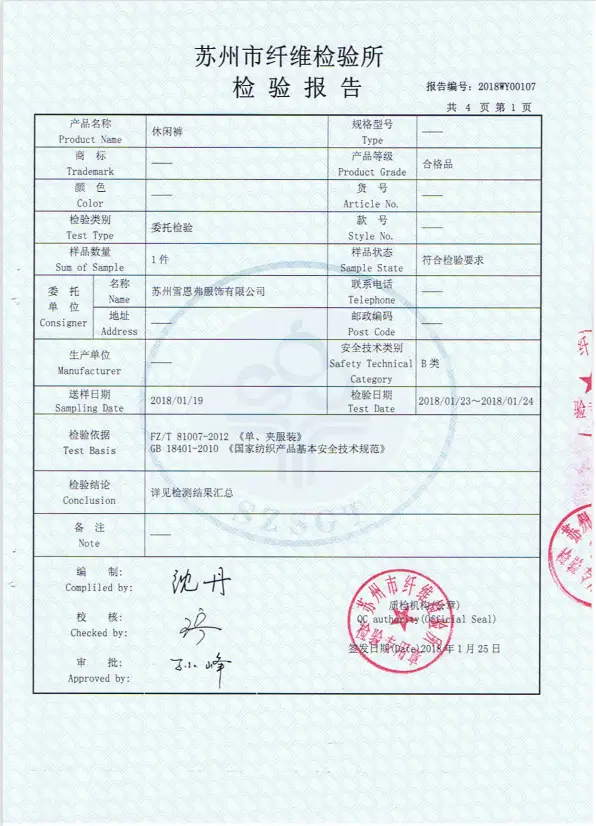 苏州市纤维检验所
检 验 报 告
报告编号: 2018WY00107
共 4 页 第 1 页
产品名称
Product Name
休闲裤
规格型号
Type
——
商 标
Trademark
——
产品等级
Product Grade
合格品
颜 色
Color
——
货 号
Article No.
——
检验类别
Test Type
委托检验
款 号
Style No.
——
样品数量
Sum of Sample
1 件
样品状态
Sample State
符合检验要求
委 托
单 位
Consigner
名称
Name
苏州雪恩弗服饰有限公司
联系电话
Telephone
——
地址
Address
——
邮政编码
Post Code
——
生产单位
Manufacturer
——
安全技术类别
Safety Technical
Category
B 类
送样日期
Sampling Date
2018/01/19
检验日期
Test Date
2018/01/23～2018/01/24
检验依据
Test Basis
FZ/T 81007-2012 《单、夹服装》
GB 18401-2010 《国家纺织产品基本安全技术规范》
检验结论
Conclusion
详见检测结果汇总
备 注
Note
——
SZSGT
编 制:
Compliled by:
沈丹
校 核:
Checked by:
审 批:
Approved by:
孙小峰
苏州市纤维检验所
检验专用章
质检机构(公章)
QC authority(Official Seal)
签发日期(Date)2018 年 1 月 25 日
纤
验
苏州
检验专